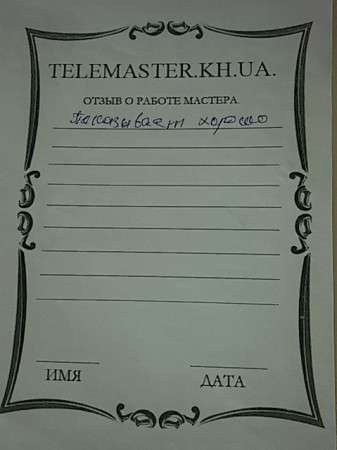 TELEMASTER.KH.UA.
ОТЗЫВ О РАБОТЕ МАСТЕРА.
Показывает хорошо
ИМЯ
ДАТА